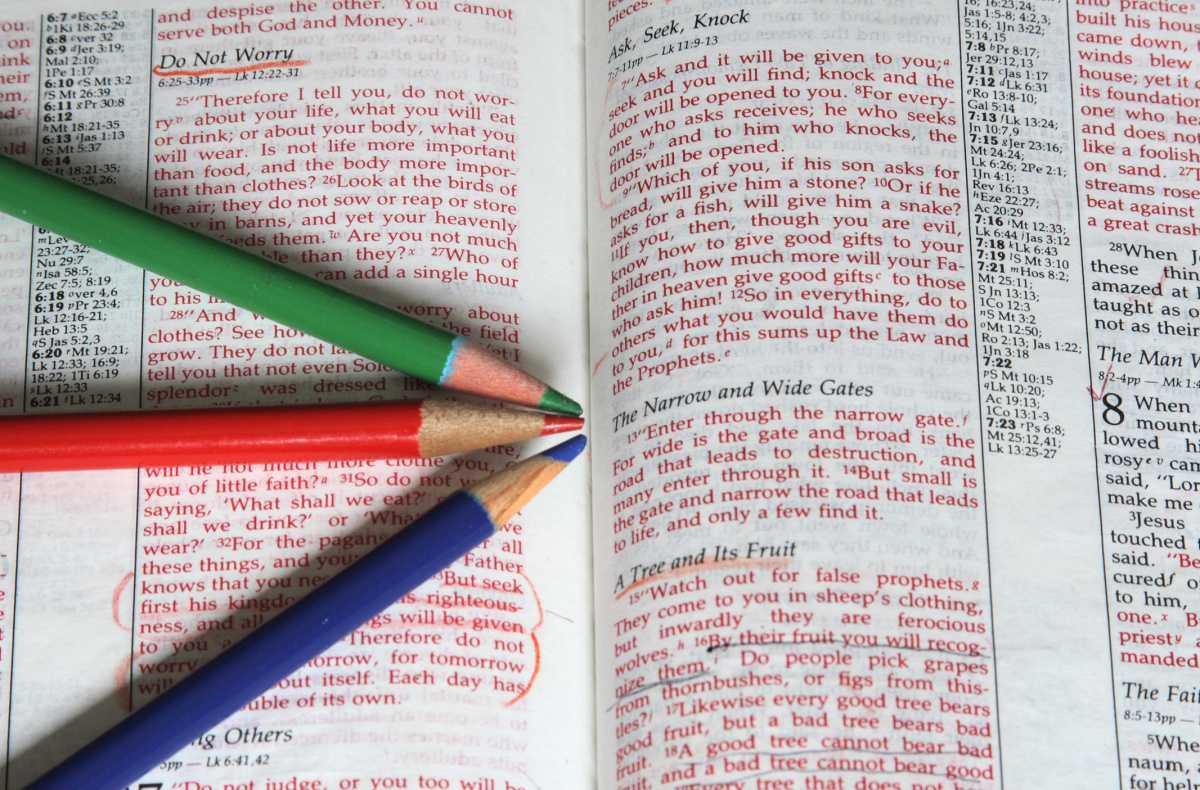 6:7 ᵃEcc 5:2
ᵇ1Ki 18:26-29
6:8 ᶜver 32
6:9 ᵈJer 3:19;
Mal 2:10;
1Pe 1:17
6:10 ᵉS Mt 3:2
ᶠS Mt 26:39
6:11 ᵍPr 30:8
6:12
ʰMt 18:21-35
6:13 ⁱJas 1:13
S Mt 5:37
6:14
18:21-35;
25,26;
ᵐLev
23:27-32;
Nu 29:7
ⁿIsa 58:5;
Zec 7:5; 8:19
6:18 ᵒver 4,6
6:19 ᵖPr 23:4;
Lk 12:16-21;
Heb 13:5
ᑫS Jas 5:2,3
6:20 ʳMt 19:21;
Lk 12:33; 16:9;
18:22; 1Ti 6:19
ˢLk 12:33
6:21 ᵗLk 12:34
and despise the other. You cannot
serve both God and Money.
Do Not Worry
6:25-33pp — Lk 12:22-31
²⁵"Therefore I tell you, do not wor-
ry about your life, what you will eat
or drink; or about your body, what you
will wear. Is not life more important
than food, and the body more impor-
tant than clothes? ²⁶Look at the birds of
the air; they do not sow or reap or store
in barns, and yet your heavenly
them. Are you not much
than they? ²⁷Who of
can add a single hour
to his
²⁸"And worry about
clothes? See the field
grow. They do not
tell you that not even
splendor was dressed like
will he not much more clothe you,
you of little faith? ³¹So do not
saying, 'What shall we eat?'
shall we drink?' or we
wear?' ³²For the all
these things, and Father
knows that you But seek
first his righteous-
ness, and all will be given
to you Therefore do not
worry for tomorrow
itself. Each day has
of its own.
Others
— Lk 6:41,42
"Do not judge, or you too will be
pieces."
Ask, Seek, Knock
7:7-11pp — Lk 11:9-13
⁷"Ask and it will be given to you;ᵃ
seek and you will find; knock and the
door will be opened to you. ⁸For every-
one who asks receives; he who seeks
finds;ᵇ and to him who knocks, the
door will be opened.
⁹"Which of you, if his son asks for
bread, will give him a stone? ¹⁰Or if he
asks for a fish, will give him a snake?
¹¹If you, then, though you are evil,
know how to give good gifts to your
children, how much more will your Fa-
ther in heaven give good giftsᶜ to those
who ask him! ¹²So in everything, do to
others what you would have them do
to you,ᵈ for this sums up the Law and
the Prophets.ᵉ
The Narrow and Wide Gates
¹³"Enter through the narrow gate.ᶠ
For wide is the gate and broad is the
road that leads to destruction, and
many enter through it. ¹⁴But small is
the gate and narrow the road that leads
to life, and only a few find it.
A Tree and Its Fruit
¹⁵"Watch out for false prophets.ᵍ
They come to you in sheep's clothing,
but inwardly they are ferocious
wolves.ʰ ¹⁶By their fruit you will recog-
nize them.ⁱ Do people pick grapes
from thornbushes, or figs from this-
tles?ʲ ¹⁷Likewise every good tree bears
good fruit, but a bad tree bears bad
fruit. ¹⁸A good tree cannot bear bad
fruit, and a bad tree cannot bear good
Every tree that does not
16; 16:23,24;
Jas 1:5-8; 4:2,3;
5:16; 1Jn 3:22;
5:14,15
7:8 ᵇPr 8:17;
Jer 29:12,13
7:11 ᶜJas 1:17
7:12 ᵈLk 6:31
ᵉRo 13:8-10;
Gal 5:14
7:13 ᶠLk 13:24;
Jn 10:7,9
7:15 ᵍJer 23:16;
Mt 24:24;
Lk 6:26; 2Pe 2:1;
1Jn 4:1;
Rev 16:13
ʰEze 22:27;
Ac 20:29
7:16 ⁱMt 12:33;
Lk 6:44 ʲJas 3:12
7:18 ᵏLk 6:43
7:19 ˡS Mt 3:10
7:21 ᵐHos 8:2;
Mt 25:11;
S Jn 13:13;
1Co 12:3
ⁿS Mt 3:2
ᵒMt 12:50;
Ro 2:13; Jas 1:22;
1Jn 3:18
7:22
ᵖS Mt 10:15
ᑫLk 10:20;
Ac 19:13;
1Co 13:1-3
7:23 ʳPs 6:8;
Mt 25:12,41;
Lk 13:25-27
into practice
built his hous
came down,
winds blew
house; yet it
its foundation
one who he
and does no
like a foolish
on sand. ²⁷T
streams rose
beat against
a great crash
²⁸When J
these thin
amazed at
taught as o
not as their
The Man W
8:2-4pp — Mk 1:4
8 When
mounta
lowed h
rosy cam
said, "Lor
make me
³Jesus
touched
said. "Be
cured o
to him,
one. B
priest a
manded
The Fai
8:5-13pp —
⁵When
naum, a
for help